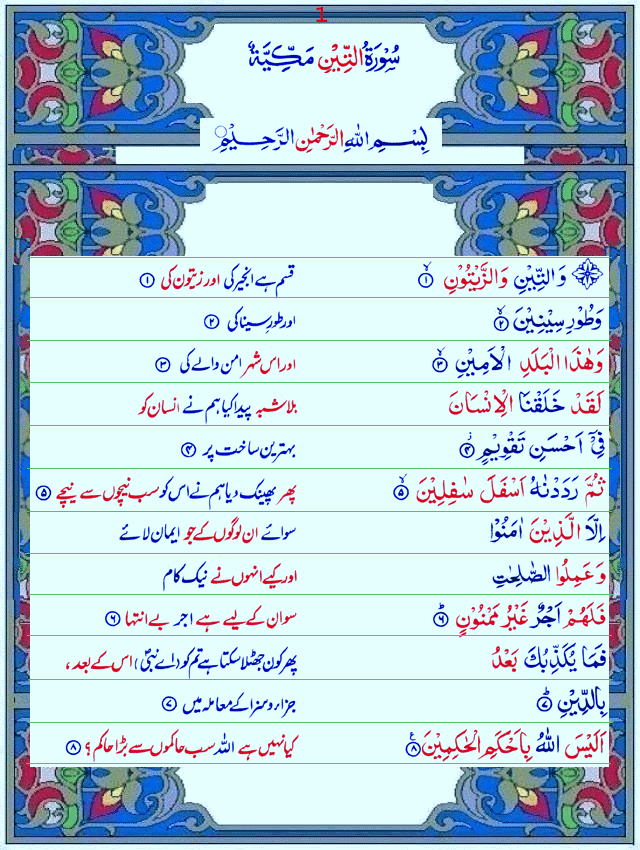 1
سُوْرَةُ التِّيْنِ مَكِّيَّةٌ
بِسْمِ اللّٰهِ الرَّحْمٰنِ الرَّحِيْمِ
وَالتِّيْنِ وَالزَّيْتُوْنِ ۙ﴿۱﴾ قسم ہے انجیر کی اور زیتون کی ﴿۱﴾
وَطُوْرِ سِيْنِيْنَ ۙ﴿۲﴾ اور طورِ سینا کی ﴿۲﴾
وَهٰذَا الْبَلَدِ الْاَمِيْنِ ۙ﴿۳﴾ اور اس شہر امن والے کی ﴿۳﴾
لَقَدْ خَلَقْنَا الْاِنْسَانَ بلاشبہ پیدا کیا ہم نے انسان کو
فِىْۤ اَحْسَنِ تَقْوِيْمٍ ۙ﴿۴﴾ بہترین ساخت پر ﴿۴﴾
ثُمَّ رَدَدْنٰهُ اَسْفَلَ سٰفِلِيْنَ ۙ﴿۵﴾ پھر پھینک دیا ہم نے اس کو سب نیچوں سے نیچے ﴿۵﴾
اِلَّا الَّذِيْنَ اٰمَنُوْا سوائے ان لوگوں کے جو ایمان لائے
وَعَمِلُوا الصّٰلِحٰتِ اور کیے انہوں نے نیک کام
فَلَهُمْ اَجْرٌ غَيْرُ مَمْنُوْنٍ ؕ﴿۶﴾ سو ان کے لیے ہے اجر بے انتہا ﴿۶﴾
فَمَا يُكَذِّبُكَ بَعْدُ پھر کون جھٹلا سکتا ہے تم کو (اے نبیؐ) اس کے بعد ،
بِالدِّيْنِ ؕ﴿۷﴾ جزا و سزا کے معاملہ میں ﴿۷﴾
اَلَيْسَ اللّٰهُ بِاَحْكَمِ الْحٰكِمِيْنَ ﴿۸﴾ کیا نہیں ہے اللہ سب حاکموں سے بڑا حاکم ؟ ﴿۸﴾